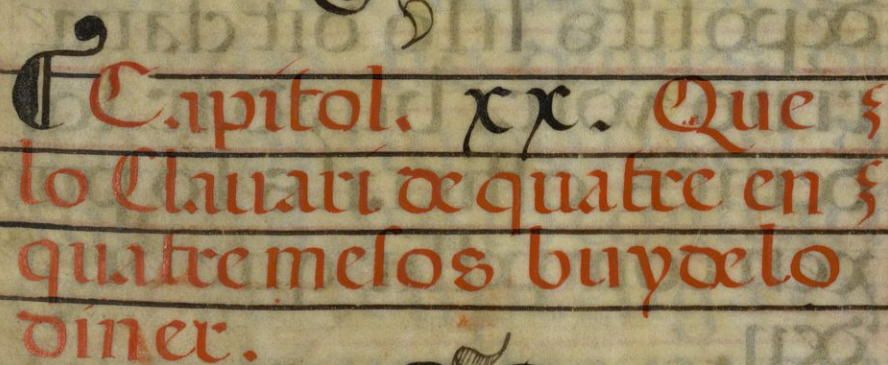 ¶ Capitol. xx. Que
lo Clauari de quatre en
quatre mesos buyde lo
diner.